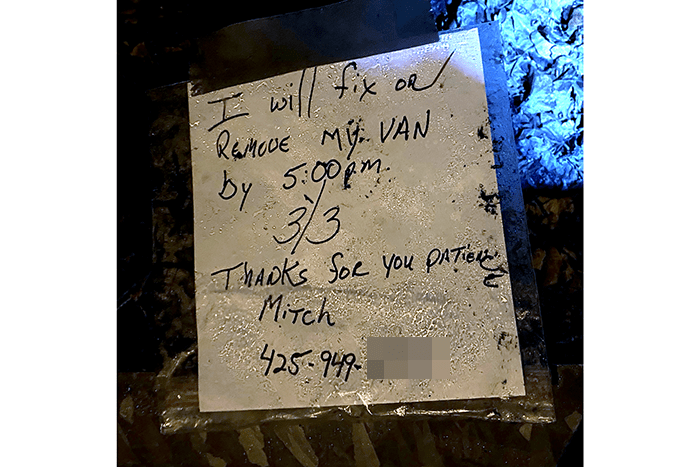 I will fix or
Remove my VAN
by 5:00pm
3/3
Thanks for you patience
Mitch
425-949-